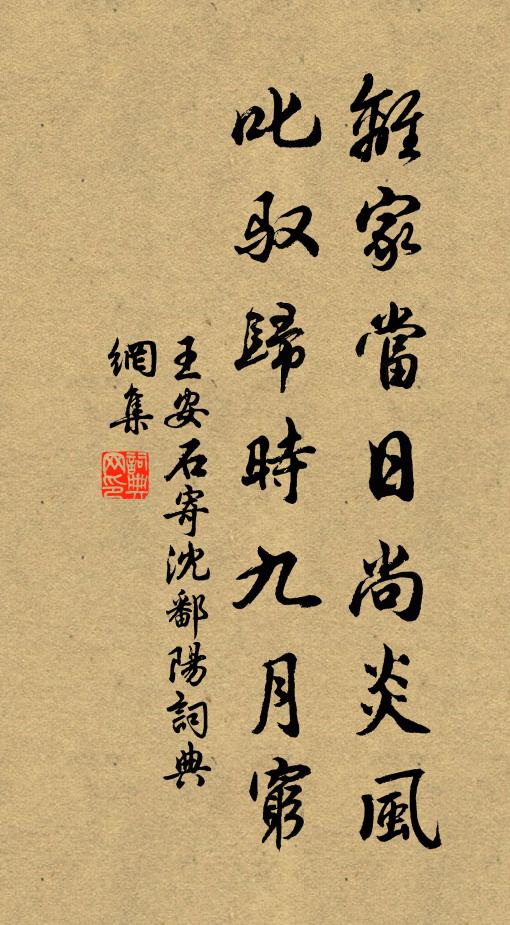 離家當日尚炎風
叱馭歸時九月窮
王安石寄沈鄱陽詞典
網集
詞典網印